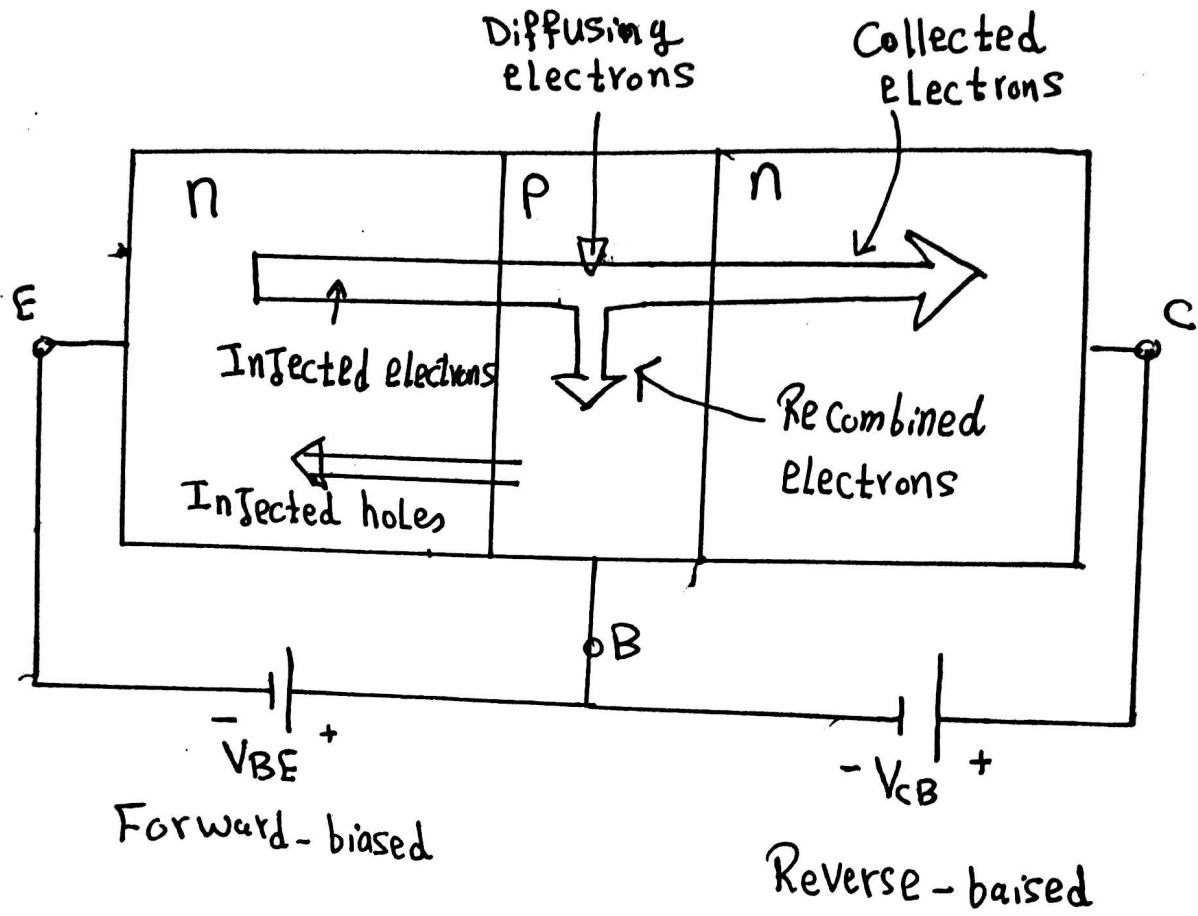 Diffusing
electrons
Collected
electrons
n
P
n
E
C
Injected electrons
Recombined
electrons
Injected holes
B
- VBE +
Forward-biased
- VCB +
Reverse-baised